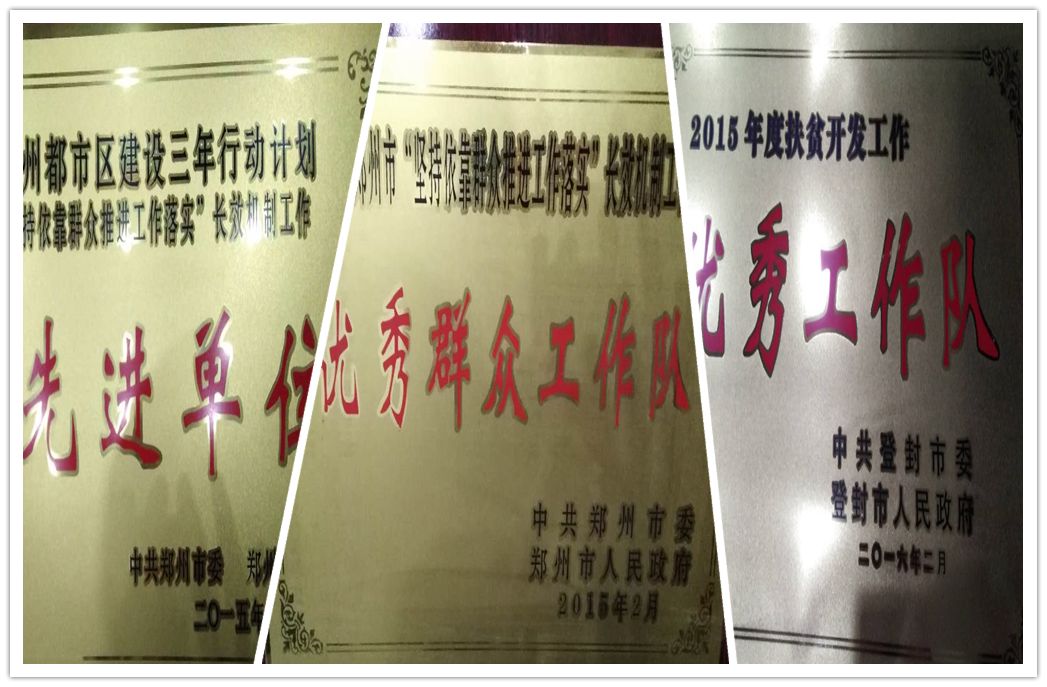 州都市区建设三年行动计划
持依靠群众推进工作落实”长效机制工作
先进单位
中共郑州市委 郑州
二〇一五年
郑州市“坚持依靠群众推进工作落实”长效机制工
优秀群众工作队
中共郑州市委
郑州市人民政府
2015年2月
2015年度扶贫开发工作
优秀工作队
中共登封市委
登封市人民政府
二〇一六年二月